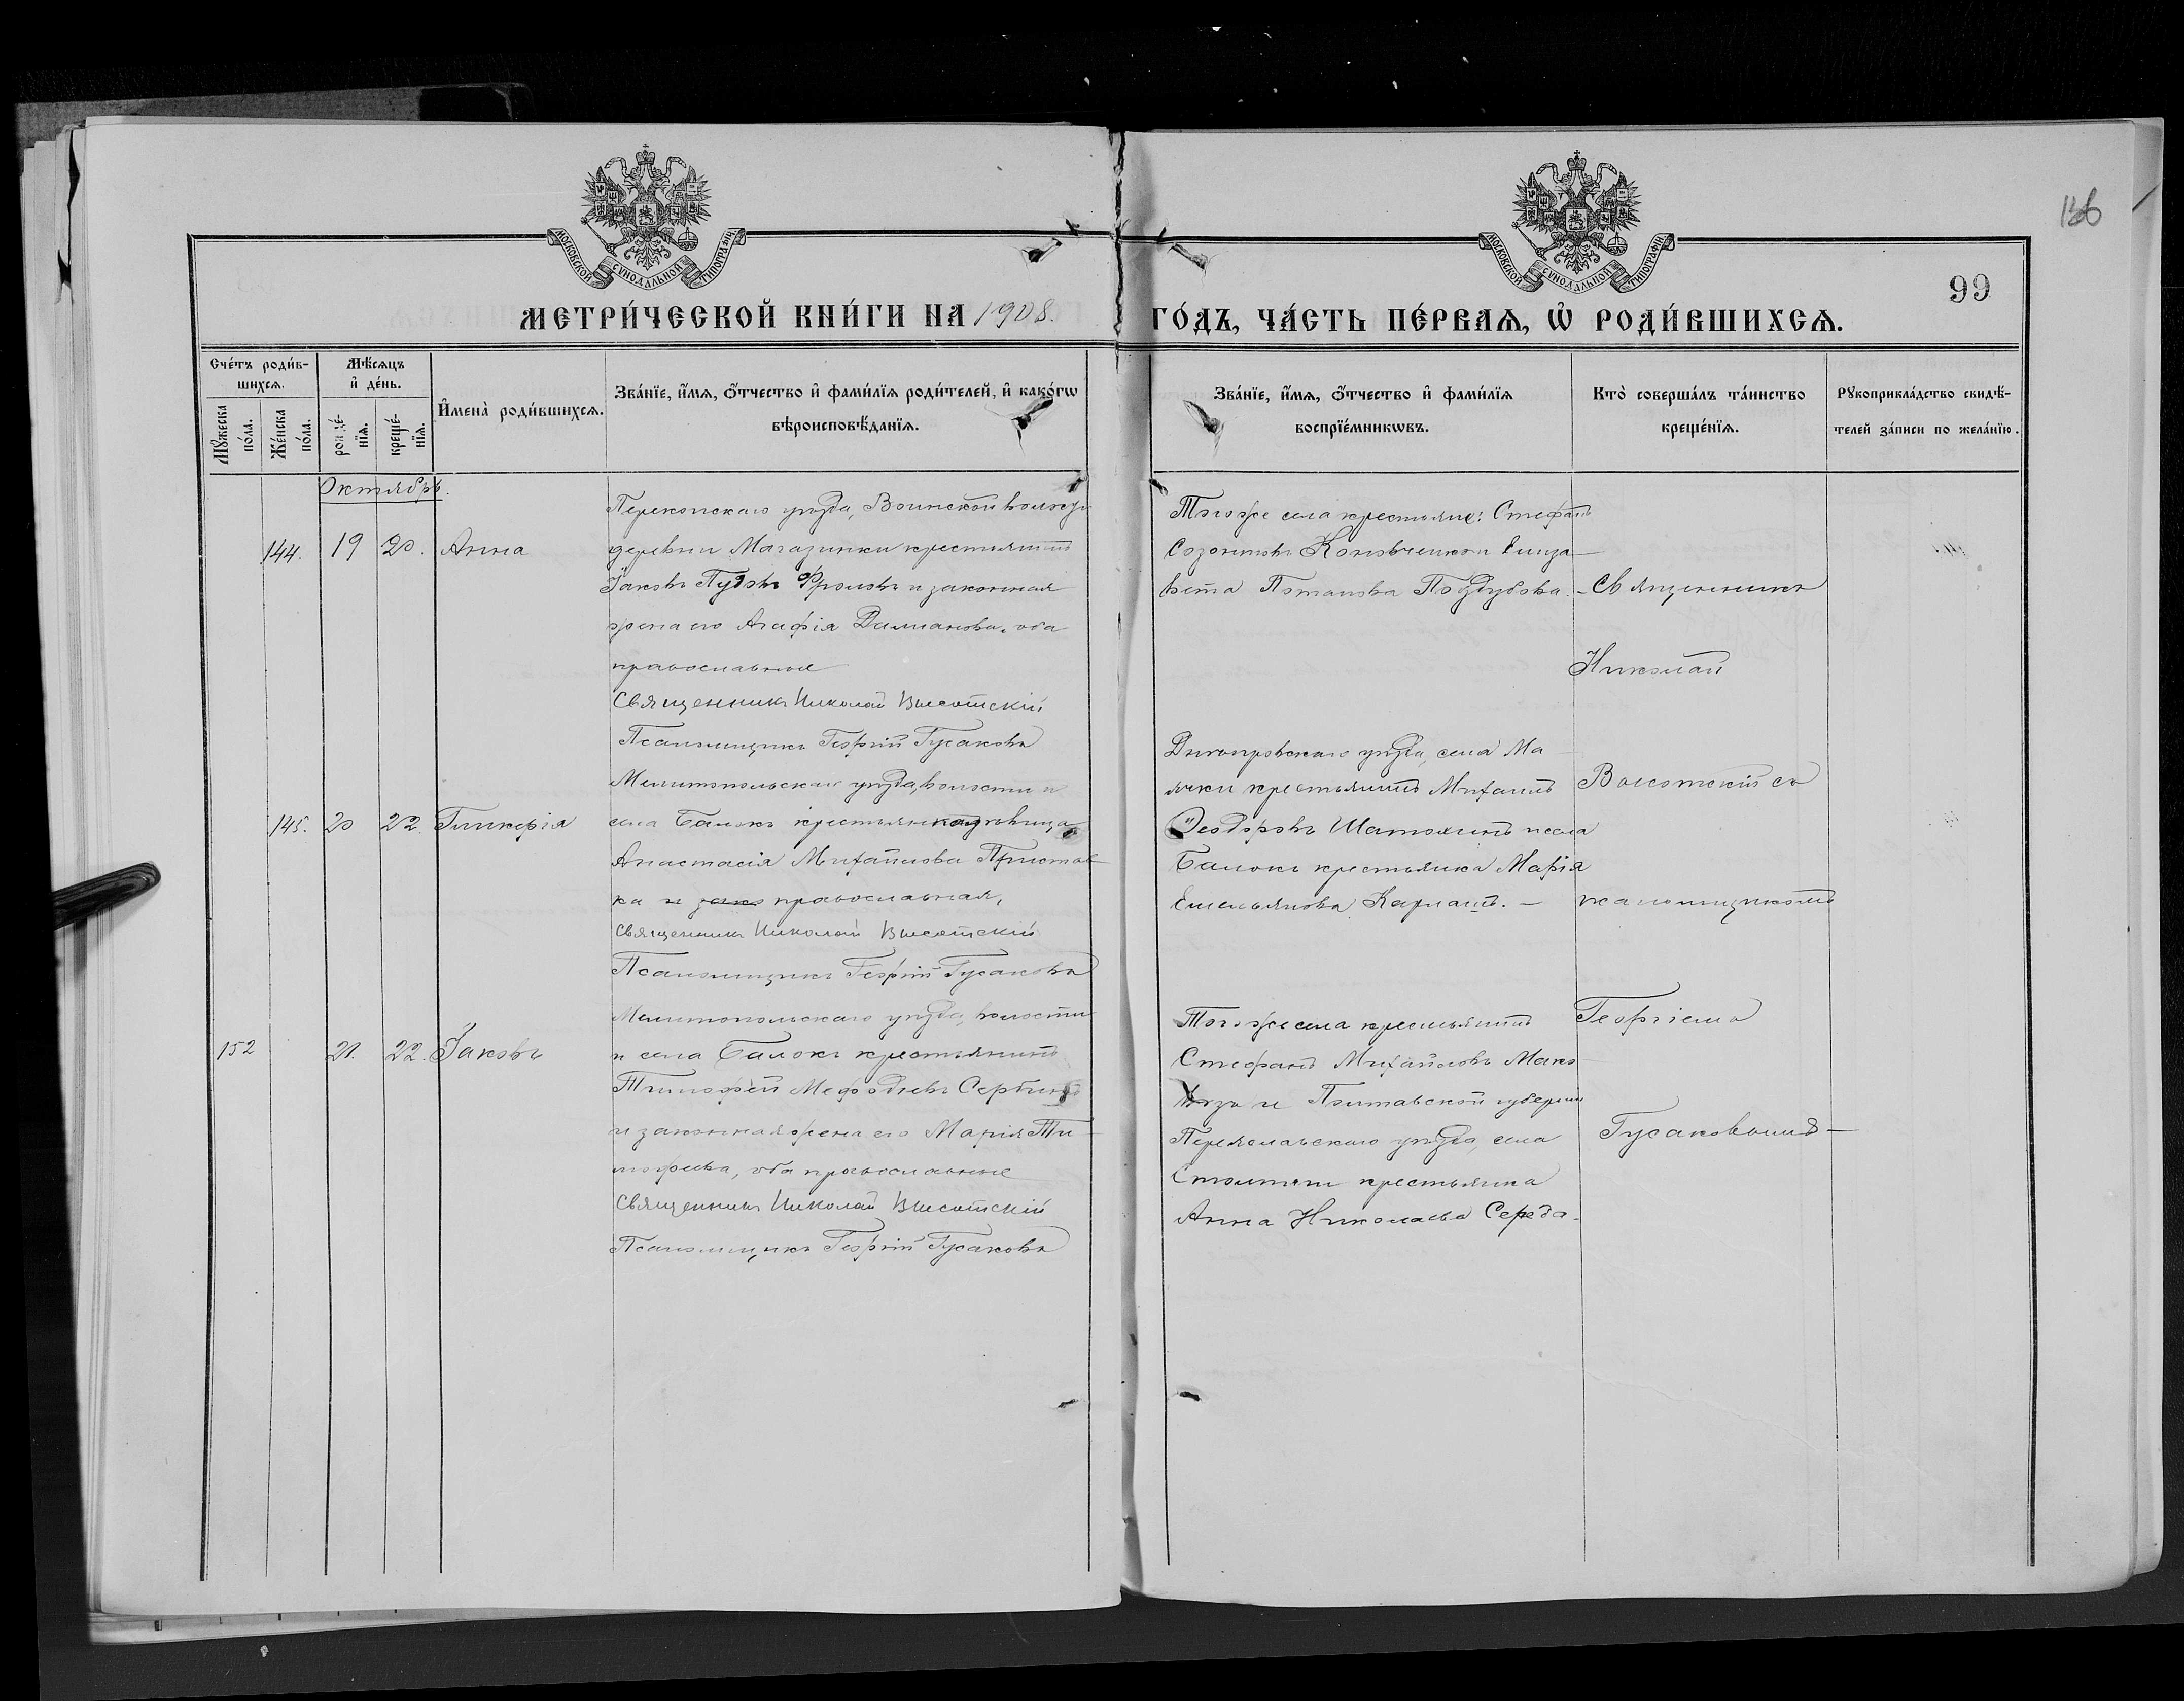 136
99
МОСКОВСКОЙ СѴНОДАЛЬНОЙ ТИПОГРАФІИ
МОСКОВСКОЙ СѴНОДАЛЬНОЙ ТИПОГРАФІИ
МЕТРИ́ЧЕСКОЙ КНИ́ГИ НА 1908. ГО́ДЪ, ЧА́СТЬ ПЕ́РВАѦ, Ѡ҆ РОДИ́ВШИХСѦ.
Сче́тъ роди́в-
шихсѧ.
Мꙋ́жеска по́ла.
Же́нска по́ла.
Мѣ́сѧцъ
и҆ де́нь.
рожде́-
нїѧ.
креще́-
нїѧ.
И҆мена̀ роди́вшихсѧ.
Зва́нїе, и҆́мѧ, ѻ҆́тчество и҆ фами́лїѧ роди́телей, и҆ како́гѡ
вѣроисповѣ́данїѧ.
Зва́нїе, и҆́мѧ, ѻ҆́тчество и҆ фами́лїѧ
воспрїе́мникѡвъ.
Кто̀ соверша́лъ та́инство
креще́нїѧ.
Рꙋкоприкла́дство свидѣ́-
телей за́писи по жела́нїю.
Октябрь.
144. 19 20. Анна
Перекопскаго уѣзда, Воинской волости
деревни Магазинки крестьянинъ
Іаковъ Пудовъ Фроловъ и законная
жена его Агафія Дамианова, оба
православные
Священникъ Николай Высотскій
Псаломщикъ Георгій Гусаковъ
Тогоже села крестьяне: Стефанъ
Созонтовъ Коновченко и Елиза-
вета Потапова Поддубова.
145. 20 22. Гликерія
Мелитопольскаго уѣзда, волости и
села Балокъ крестьянка вдовица
Анастасія Михайлова Пристав-
ка и зако православная,
Священникъ Николай Высотскій
Псаломщикъ Георгій Гусаковъ
Днепровскаго уѣзда, села Ма-
ячки крестьянинъ Михаилъ
Ѳеодоровъ Шатохинъ и села
Балокъ крестьянка Марія
Емельянова Карпашъ. —
152 21. 22. Іаковъ
Мелитопольскаго уѣзда, волости
и села Балокъ крестьянинъ
Тимофей Мефодіевъ Сербинъ
и законная жена его Марія Ти-
мофеева, оба православные
Священникъ Николай Высотскій
Псаломщикъ Георгій Гусаковъ
Тогоже села крестьянинъ
Стефанъ Михайловъ Мако-
и Полтавской губерніи
Переяславскаго уѣзда, села
крестьянка
Анна Николаева Середа.
Священникъ
Николай
Высотскій съ
псаломщикомъ
Георгіемъ
Гусаковымъ —